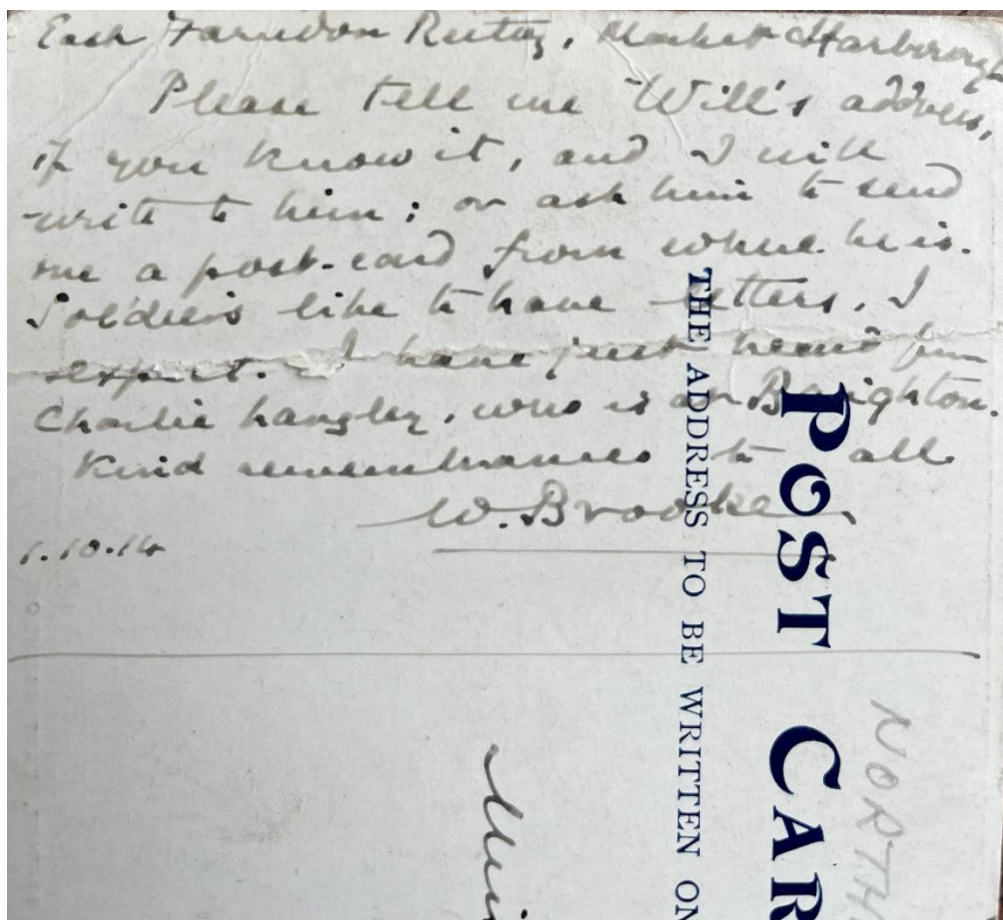 East Farndon Rectory, Market Harborough
Please tell me Will's address,
if you know it, and I will
write to him; or ask him to send
me a post-card from where he is.
Soldiers like to have letters, I
expect. I have just heard from
Charlie Langley, who is at Brighton.
Kind remembrances to all
W. Brooke
1.10.14
POST CAR
THE ADDRESS TO BE WRITTEN ON
NORTH